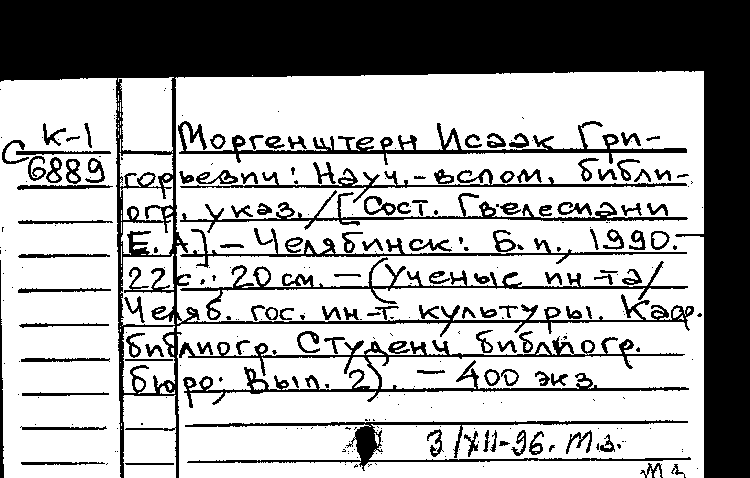 К-1
С 6889
Моргенштерн Исаак Гри-
горьевич: Науч.-вспом. библи-
огр. указ. / [Сост. Гвелесиани
Е. А.]. – Челябинск: Б. и., 1990. –
22 с.; 20 см. – (Ученые ин-та /
Челяб. гос. ин-т культуры. Каф.
библиогр. Студенч. библиогр.
бюро; Вып. 2). – 400 экз.
3/XII-96. М.з.
М з